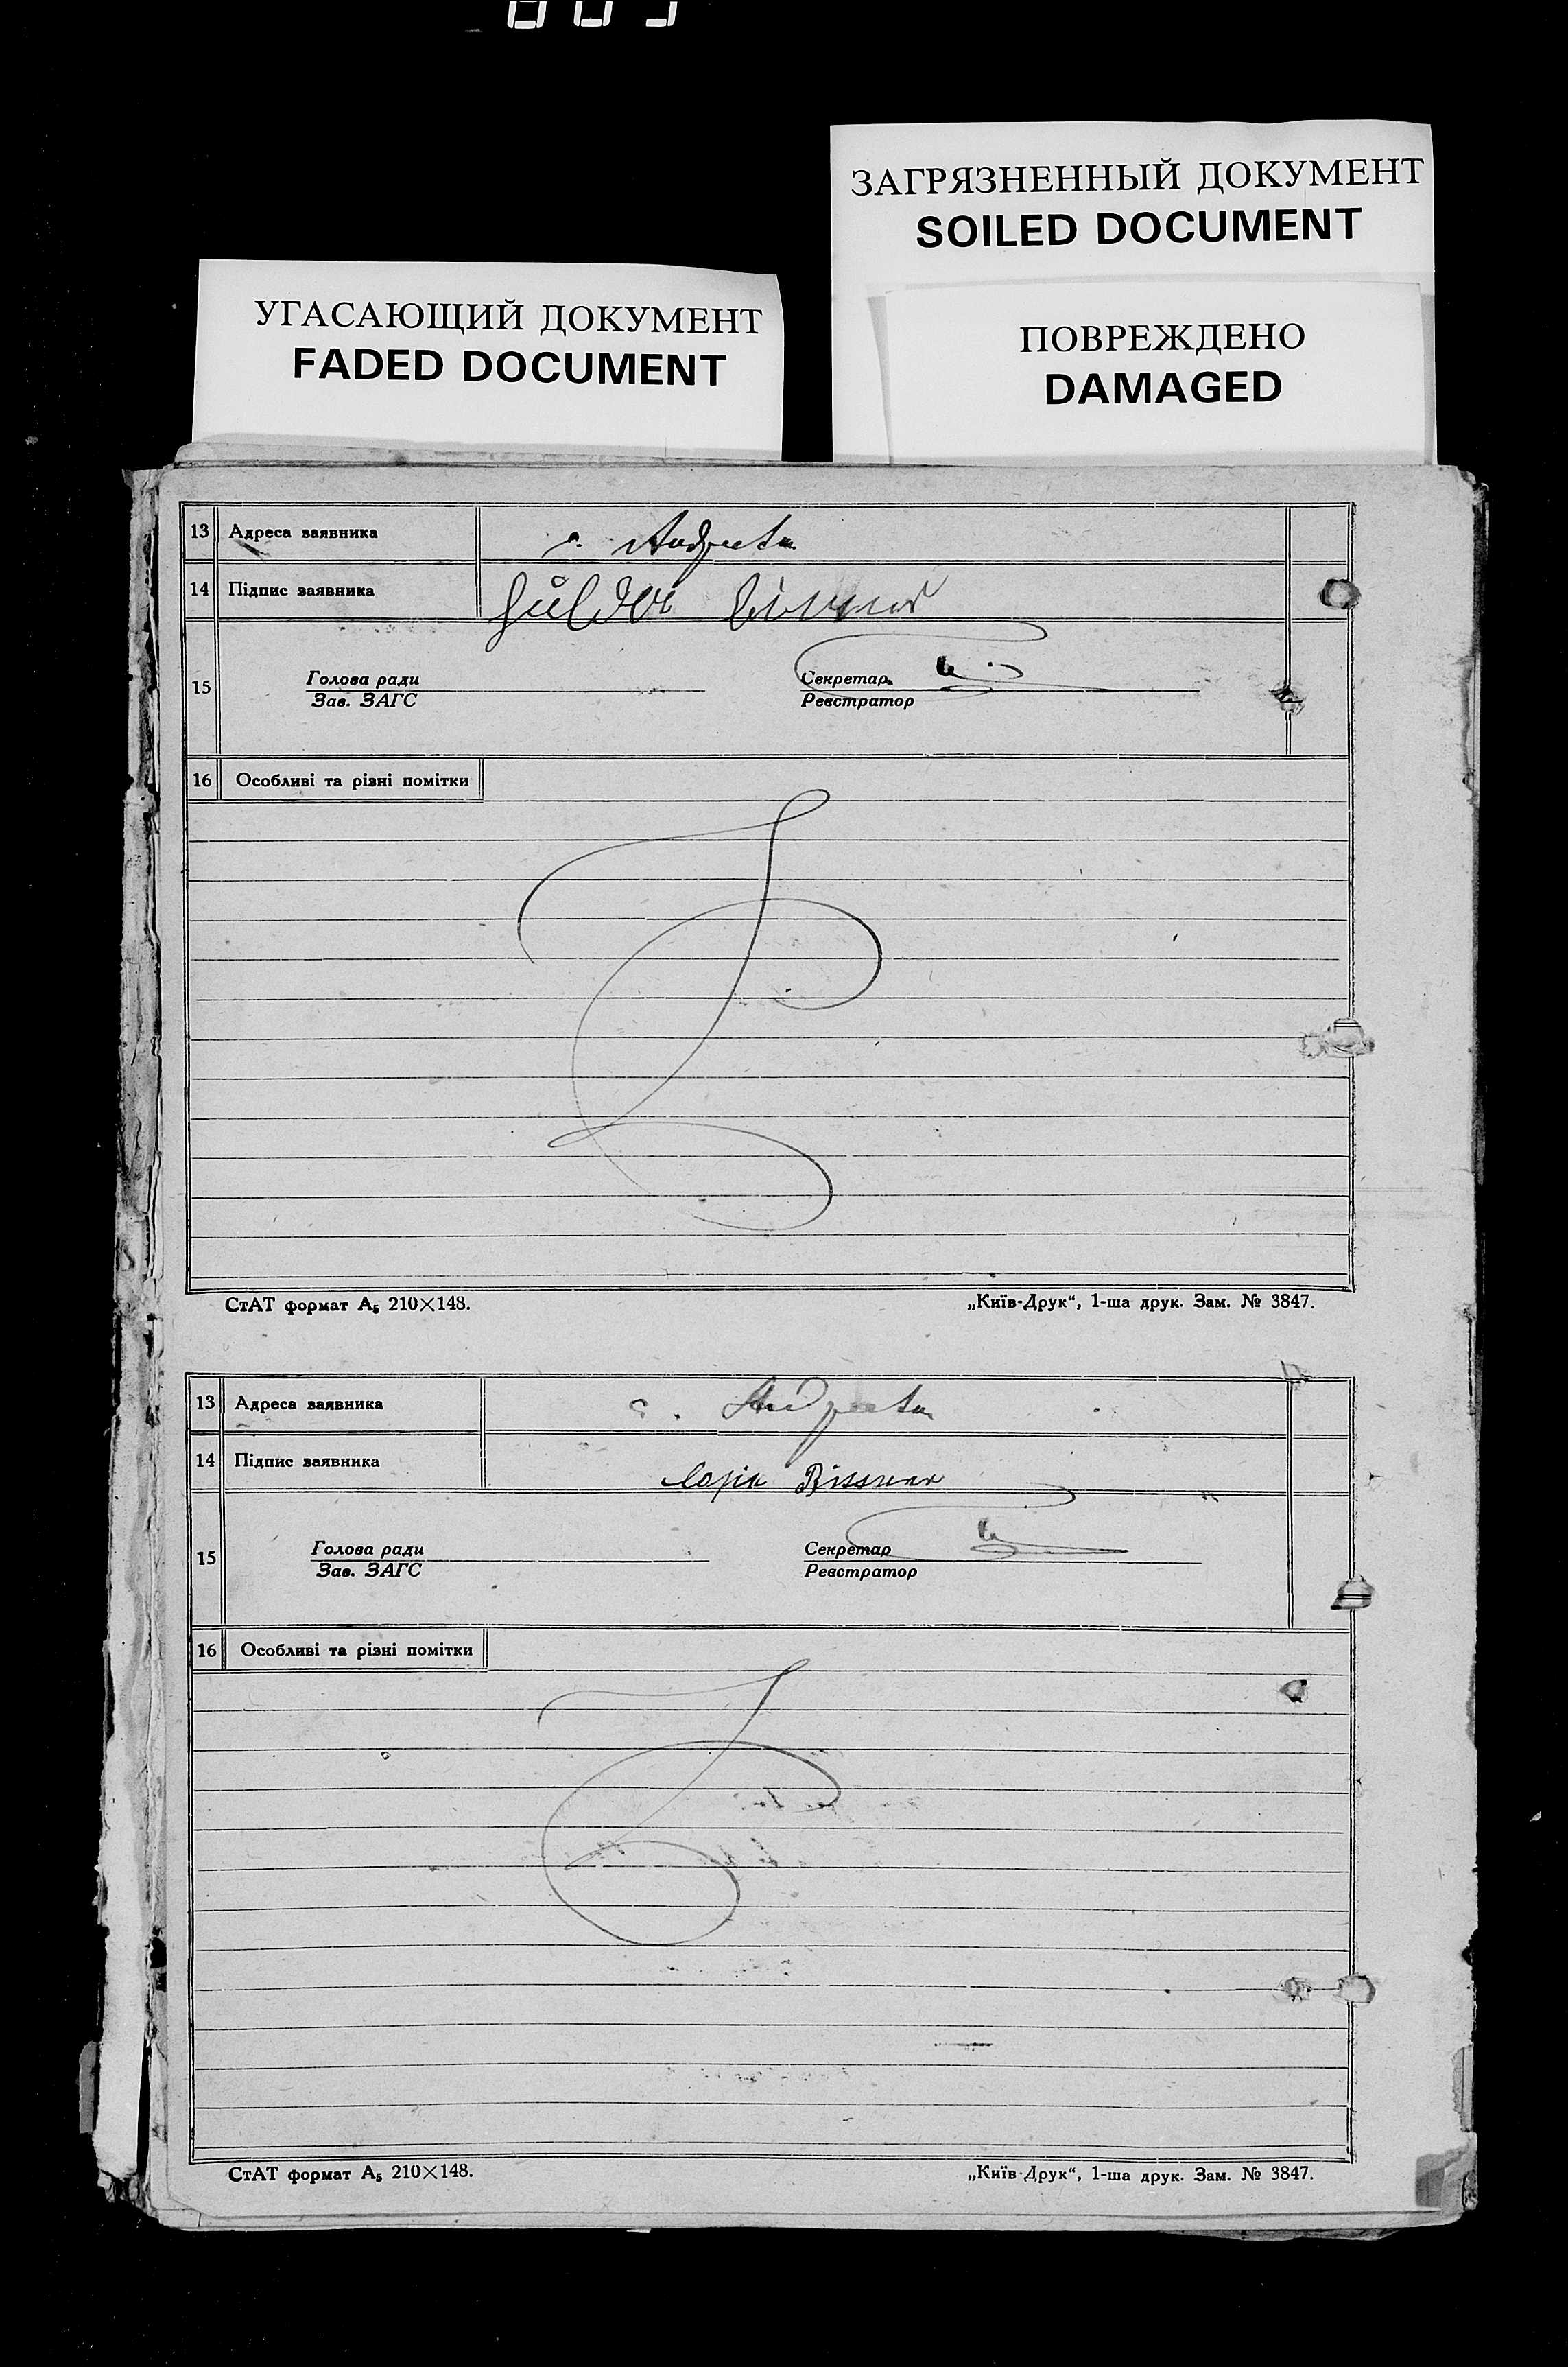 ЗАГРЯЗНЕННЫЙ ДОКУМЕНТ
SOILED DOCUMENT
УГАСАЮЩИЙ ДОКУМЕНТ
FADED DOCUMENT
ПОВРЕЖДЕНО
DAMAGED
13 Адреса заявника
14 Підпис заявника
15 Голова ради Секретар
Зав. ЗАГС Реєстратор
16 Особливі та різні помітки
СтАТ формат А5 210×148. „Київ-Друк“, 1-ша друк. Зам. № 3847.
13 Адреса заявника
14 Підпис заявника
15 Голова ради Секретар
Зав. ЗАГС Реєстратор
16 Особливі та різні помітки
СтАТ формат А5 210×148. „Київ-Друк“, 1-ша друк. Зам. № 3847.